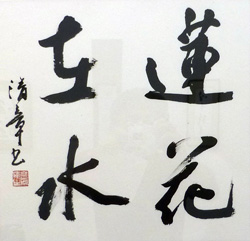 蓮花
在水
清章书